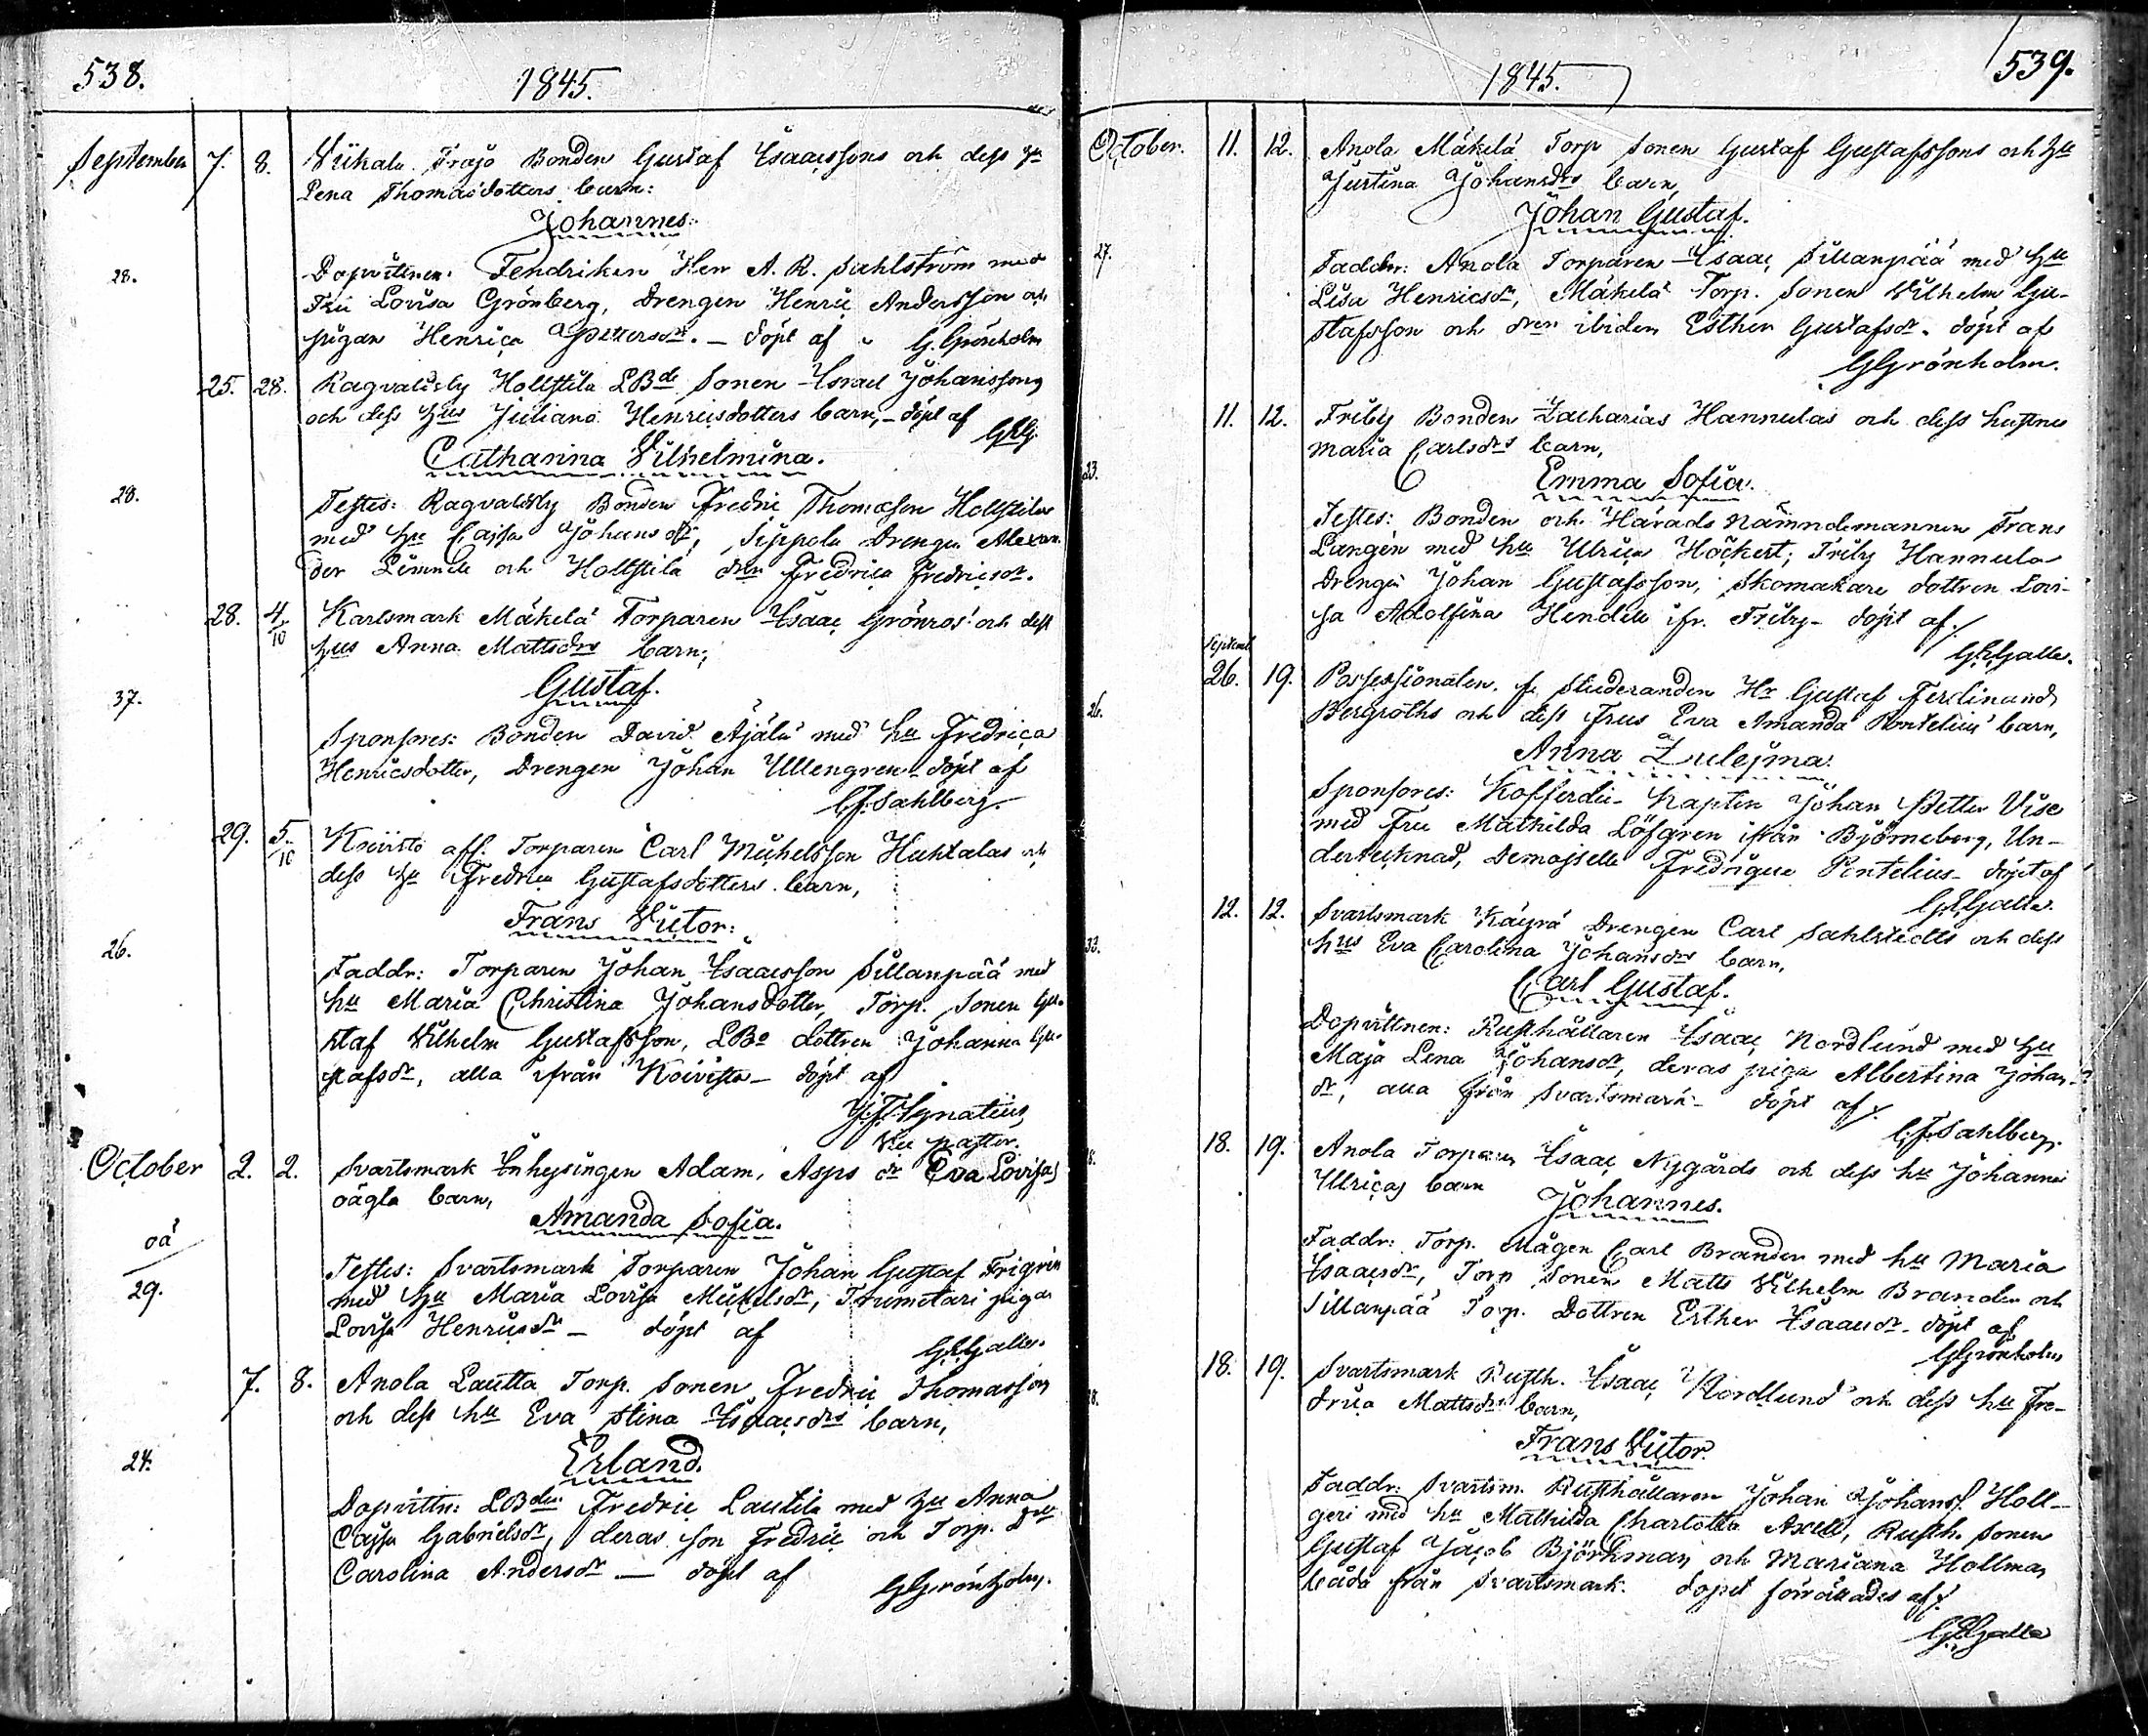 538.
1845.
September 7. 8. Bonden Gustaf Isaacssons och dess hu
Lena Thomasdotters barn:
Johannes.
28. Dopvittnen: Fendriken Herr A. R. Sahlström med
Fru Lovisa Grönberg, Drengen Henric Andersson och
pigan Henrica Pettersdr. – döpt af G. Grönholm
25. 28. Ragvaldsby Hollstila LBde Sonen Israel Johanssons
och dess hus Juliana Henricsdotters barn, – döpt af
Catharina Vilhelmina.
28. Testes: Ragvaldsby Bonden Fredric Thomasson Hollstila
med hu Cajsa Johansdr, Sippola Drengen Alexan
der och Hollstila Fredrica Fredricsdr.
28. 4/10 Karlsmark Mäkelä Torparen Isaac Grönros och dess
hus Anna Mattsdrs barn,
Gustaf.
37. Sponsores: Bonden David Äjälä med hu Fredrica
Henricsdotter, Drengen Johan Ullengren – döpt af
C.F. Sahlberg.
29. 5/10 Koivisto aff. Torparen Carl Michelsson Huhtalas och
dess hu Fredrica Gustafsdotters barn,
Frans Victor.
26. Faddr: Torparen Johan Isaacsson Sillanpää med
hu Maria Christina Johansdotter, Torp. Sonen Gu-
staf Vilhelm Gustafsson, LBo dottren Johanna Gu-
stafsdr, alla ifrån Koivisto – döpt af
J.F. Ignatius,
Vice pastor.
October 2. 2. Svartsmark Inhysingen Adam Asps dr Eva Lovisas
oägta barn,
Amanda Sofia.
oä
29. Testes: Svartsmark Torparen Johan Gustaf Frigrén
med hu Maria Lovisa Michelsdr, Trumetari piga
Lovisa Henricsdr – döpt af
G.E. Galle.
7. 8. Anola Lautta Torp. Sonen Fredric Thomasson
och dess hu Eva Stina Isaacsdrs barn,
Erland.
24. Dopvittn: LBden Fredric Lautila med hu Anna
Cajsa Gabrielsdr, deras son Fredric och Torp.
Carolina Andersdr – döpt af GGrönholm.
539.
1845.
October. 11. 12. Anola Mäkelä Torp Sonen Gustaf Gustafssons och hu
Justina Johansdrs barn,
Johan Gustaf.
27. Faddr: Anola Torparen Isaac Sillanpää med hu
Lisa Henricsdr, Mäkelä Torp. Sonen Vilhelm Gu-
stafsson och dren ibidem Esther Gustafsdr. döpt af
GGrönholm.
11. 12. Friby Bonden Zacharias Hannulas och dess hustrus
Maria Carlsdrs barn,
23. Emma Sofia.
Testes: Bonden och Härads Nämndemannen Frans
Langén med hu Ulrica Höckert; Friby Hannula
Drengen Johan Gustafsson, Skomakare dottren Lovi-
sa Adolfina Hendell ifr. Friby – döpt af
G.E. Galle.
Septemb
26. 19. Possessionaten, f. Studeranden Hr Gustaf Ferdinand
Bergroths och dess Frus Eva Amanda Pontelii barn,
26. Anna Zulejma.
Sponsores: Kofferdie-Kapten Johan Petter Vise
med Fru Mathilda Löfgren ifrån Björneborg, Un-
dertecknad, Demoiselle Fredrique Pontelius – döpt af
G.E. Galle.
12. 12. Svartsmark Käyrä Drengen Carl Sahlstedts och dess
hus Eva Carolina Johansdrs barn,
33. Carl Gustaf.
Dopvittnen: Rusthållaren Isaac Nordlund med hu
Maja Lena Johansdr, deras piga Albertina Johans-
dr, alla från Svartsmark – döpt af
C.F. Sahlberg.
18. 19. Anola Torparen Isaac Nygårds och dess hu Johanna
Ulricas barn
Johannes.
Faddr: Torp. Mågen Carl Brander med hu Maria
Isaacsdr, Torp Sonen Matts Vilhelm Brander och
Sillanpää Torp. Dottren Esther Isaacsdr – döpt af
GGrönholm
18. 19. Svartsmark Rusth. Isaac Nordlund och dess hu Fre-
drica Mattsdrs barn,
Frans Victor.
Faddr: Svartsm. Rusthållaren Johan Johanss. Holl-
geri med hu Mathilda Charlotta Axell, Rusth. Sonen
Gustaf Jacob Björkman och Mariana Hollman
båda från Svartsmark. dopet förrättades af
G.E. Galle